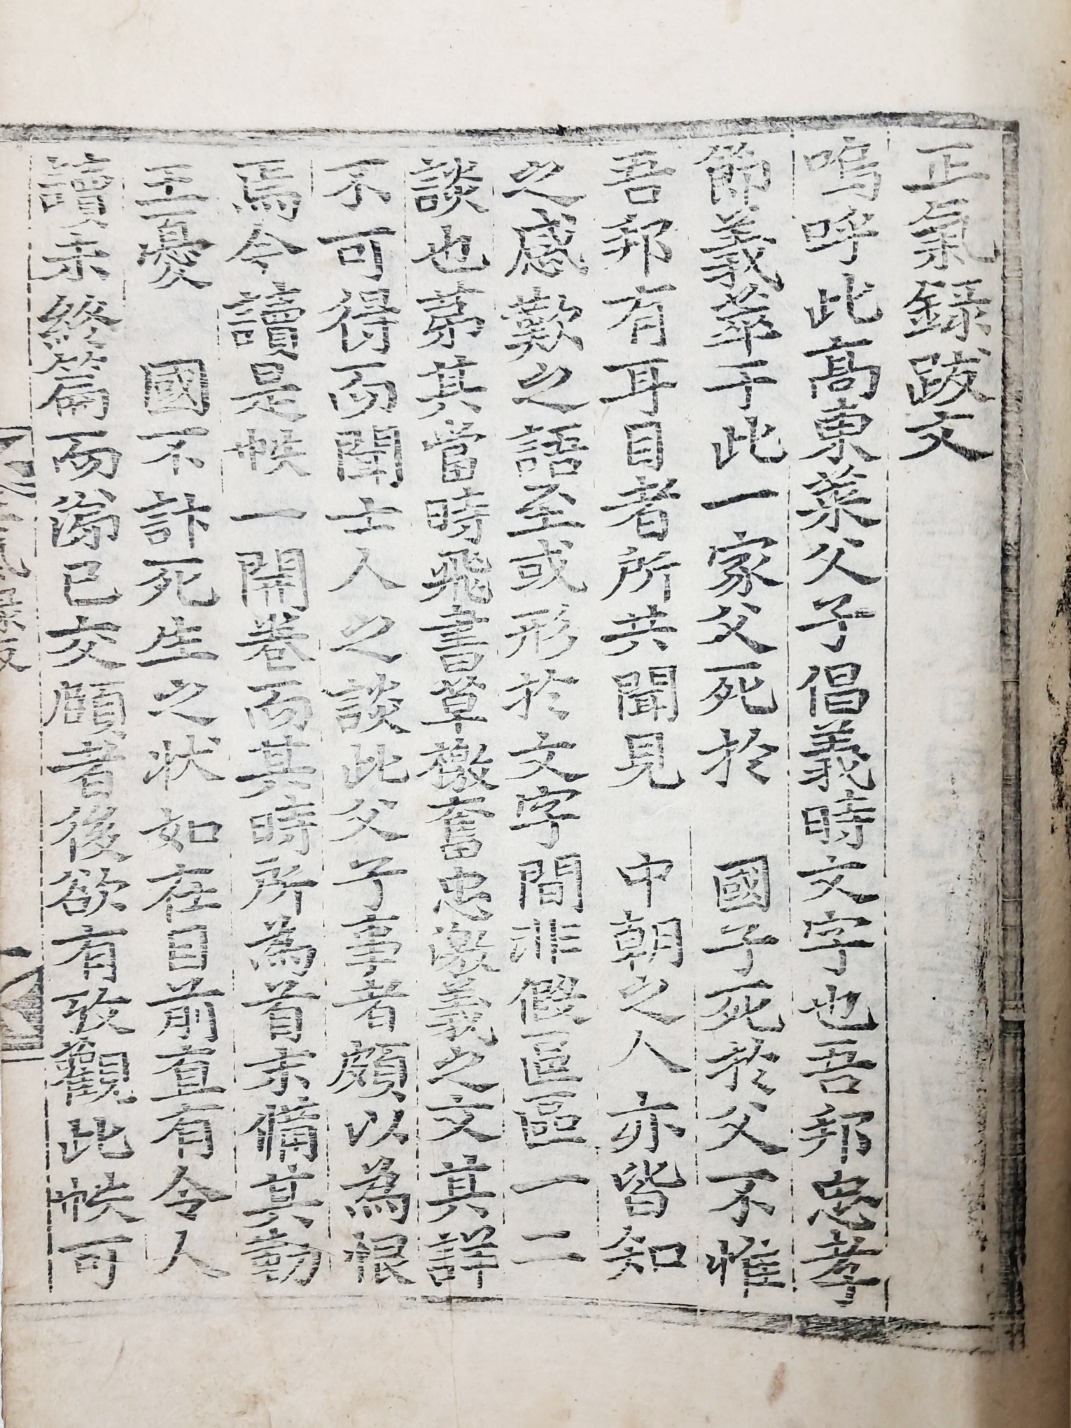 正氣録跋文
嗚呼此高東萊父子倡義時文字也吾邦忠孝
節義萃于此一家父死於　國子死於父不惟
吾邦有耳目者所共聞見　中朝之人亦皆知
之感歎之語至或形於文字間非假區區一二
談也苐其當時飛書草檄奮忠激義之文其詳
不可得而聞士人之談此父子事者頗以為恨
焉今讀是帙一開卷而其時所為首末備其勤
王憂　國不計死生之狀如在目前直有令人
讀未終篇而淚已交頤者後欲有攷觀此帙可